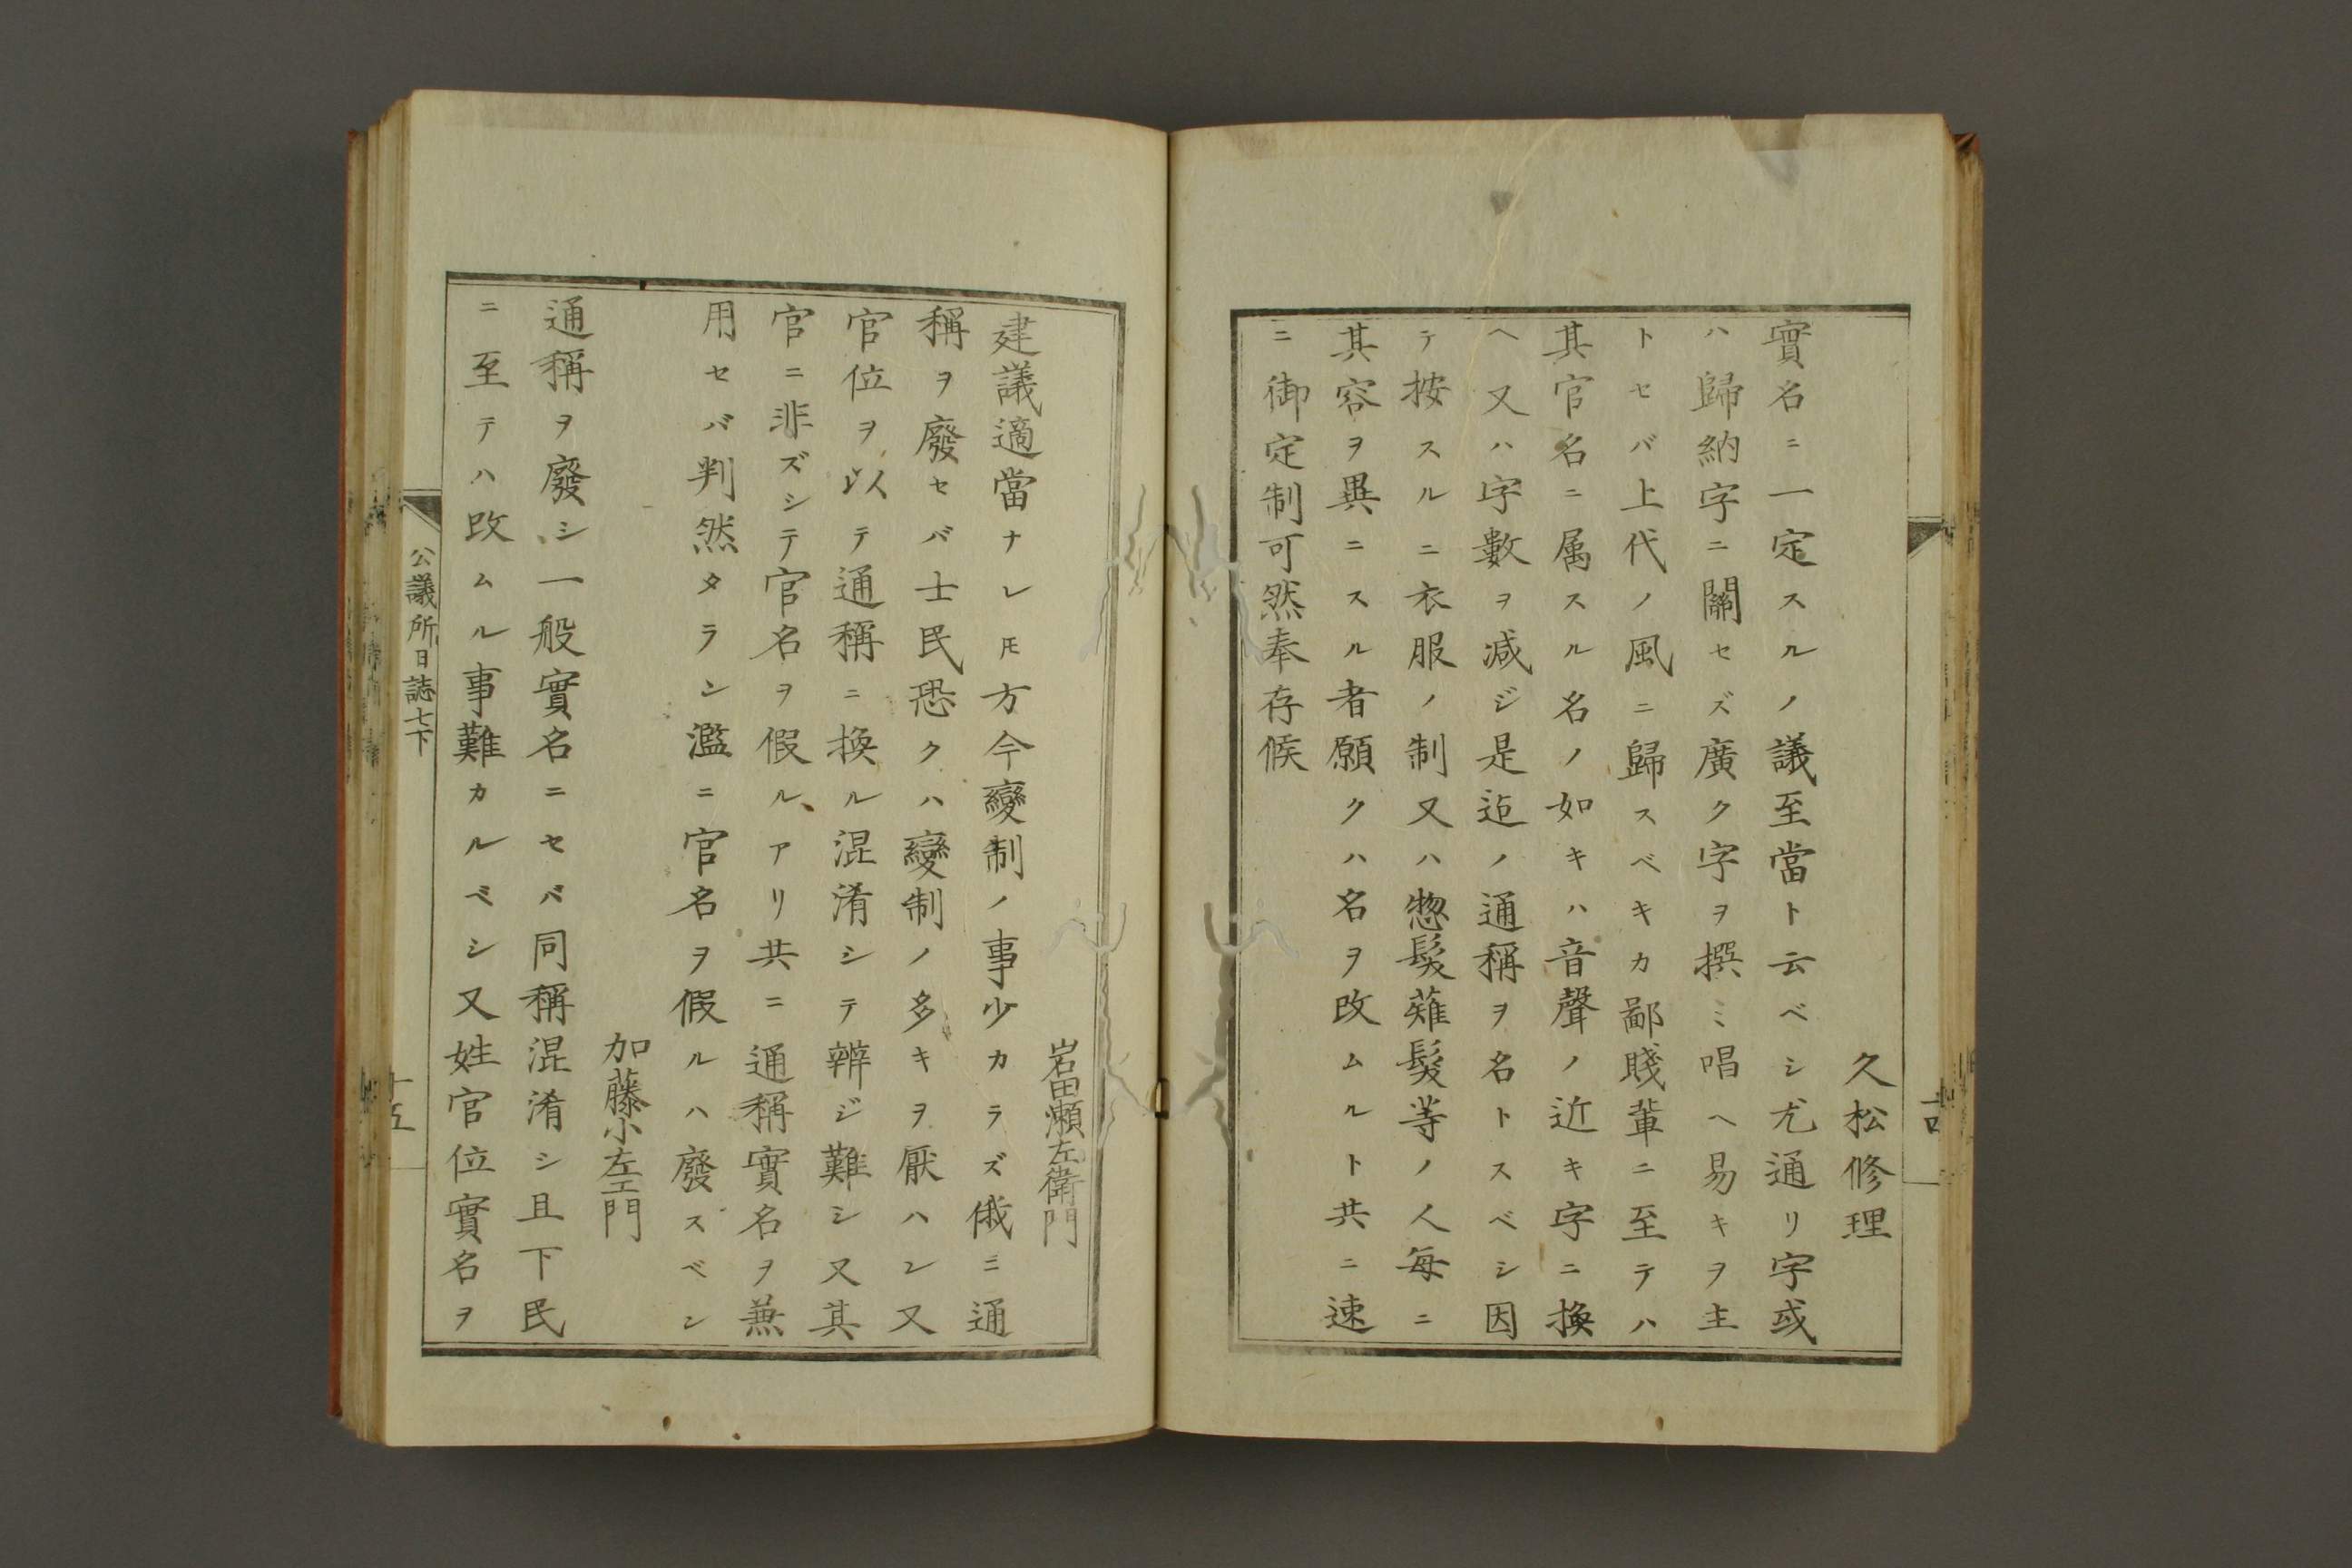 久松修理
實名ニ一定スルノ議至當ト云ベシ尤通リ字或
ハ歸納字ニ關セズ廣ク字ヲ撰ミ唱ヘ易キヲ主
トセバ上代ノ風ニ歸スベキカ鄙賤輩ニ至テハ
其官名ニ属スル名ノ如キハ音聲ノ近キ字ニ換
ヘ又ハ字數ヲ减ジ是迠ノ通稱ヲ名トスベシ因
テ按スルニ衣服ノ制又ハ惣髮薙髮等ノ人毎ニ
其容ヲ異ニスル者願クハ名ヲ改ムルト共ニ速
ニ御定制可然奉存候
岩田瀬左衛門
建議適當ナレ𪜈方今變制ノ事少カラズ俄ニ通
稱ヲ廢セバ士民恐クハ變制ノ多キヲ厭ハン又
官位ヲ以テ通稱ニ換ル混淆シテ辨ジ難シ又其
官ニ非ズシテ官名ヲ假ルアリ共ニ通稱實名ヲ兼
用セバ判然タラン濫ニ官名ヲ假ルハ廢スベシ
加藤小左エ門
通稱ヲ廢シ一般實名ニセバ同稱混淆シ且下民
ニ至テハ改ムル事難カルベシ又姓官位實名ヲ
公議所日誌七下
十五